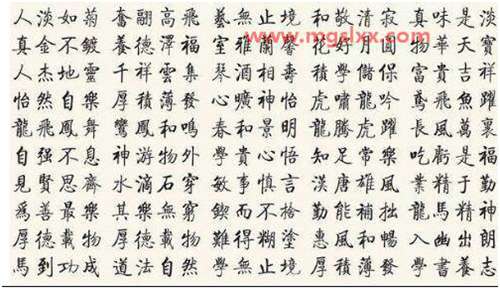 人淡如菊 奮翮高飛 藝無止境 和敬清寂 真味是淡
www.mgslxx.com
真金不鍍 養德澤福 室雅蘭馨 花好月圓 物華天寶
人杰地靈 千祥雲集 琴酒相壽 學儲 富貴吉祥
怡然自樂 厚積薄發 心曠神怡 虎嘯龍吟 鳶飛魚躍
龍飛鳳舞 鸞鳳和鳴 春和景明 龍騰虎躍 長風萬裏
自强不息 神游物外 學貴心悟 知足常樂 吃虧是福
見賢思齊 水滴石穿 敏事慎言 漢唐雄風 業精于勤
爲善最樂 其樂無窮 鍥而不捨 勤能補拙 龍馬精神
厚德載物 厚德載物 難得糊塗 惠風和暢 入幽出朗
馬到功成 道法自然 學無止境 厚積薄發 學書養志